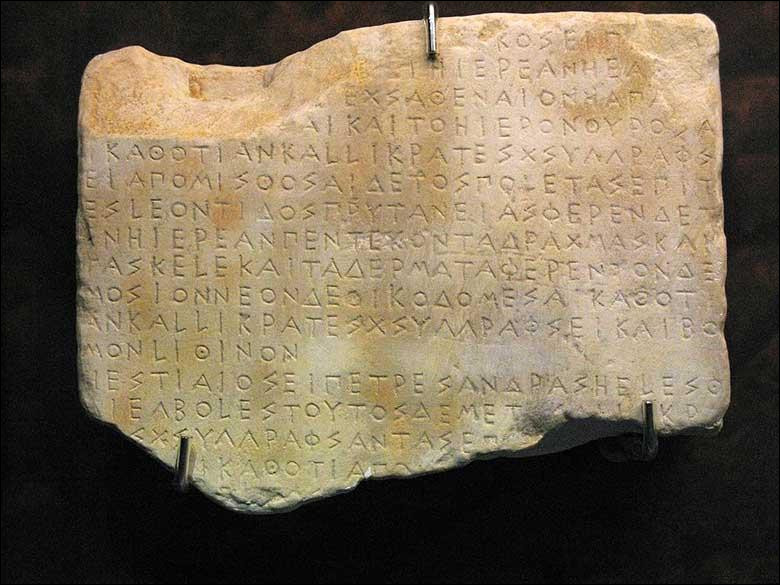 ΚΟΣΕΙΠ
ΕΙΗΙΕΡΕΑΝΗΕΑ
ΕΧΣΑΘΕΝΑΙΟΝΗΑΠΑ
ΑΙΚΑΙΤΟΗΙΕΡΟΝΘΥΡΟΣΑ
ΙΚΑΘΟΤΙΑΝΚΑΛΛΙΚΡΑΤΕΣΧΣΥΓΓΡΑΦΣ
ΕΙΑΠΟΜΙΣΘΟΣΑΙΔΕΤΟΣΠΟΛΕΤΑΣΕΠΙΤ
ΕΣΛΕΟΝΤΙΔΟΣΠΡΥΤΑΝΕΙΑΣΦΕΡΕΝΔΕΤ
ΕΝΗΙΕΡΕΑΝΠΕΝΤΕΚΟΝΤΑΔΡΑΧΜΑΣΚΑΙ
ΤΑΣΚΕΛΕΚΑΙΤΑΔΕΡΜΑΤΑΦΕΡΕΝΤΟΝΔΕ
ΜΟΣΙΟΝΝΕΟΝΔΕΟΙΚΟΔΟΜΕΣΑΙΚΑΘΟΤΙ
ΑΝΚΑΛΛΙΚΡΑΤΕΣΧΣΥΓΓΡΑΦΣΕΙΚΑΙΒΟ
ΜΟΝΛΙΘΙΝΟΝ
ΗΕΣΤΙΑΙΟΣΕΙΠΕΤΡΕΣΑΝΔΡΑΣΗΕΛΕΣΘ
ΑΙΕΓΒΟΛΕΣΤΟΥΤΟΣΔΕΜΕΤ ΚΡ
ΣΧΣΥΓΓΡΑΦΣΑΝΤΑΣΕΠ
ΚΑΘΟΤΙΑΠΟ